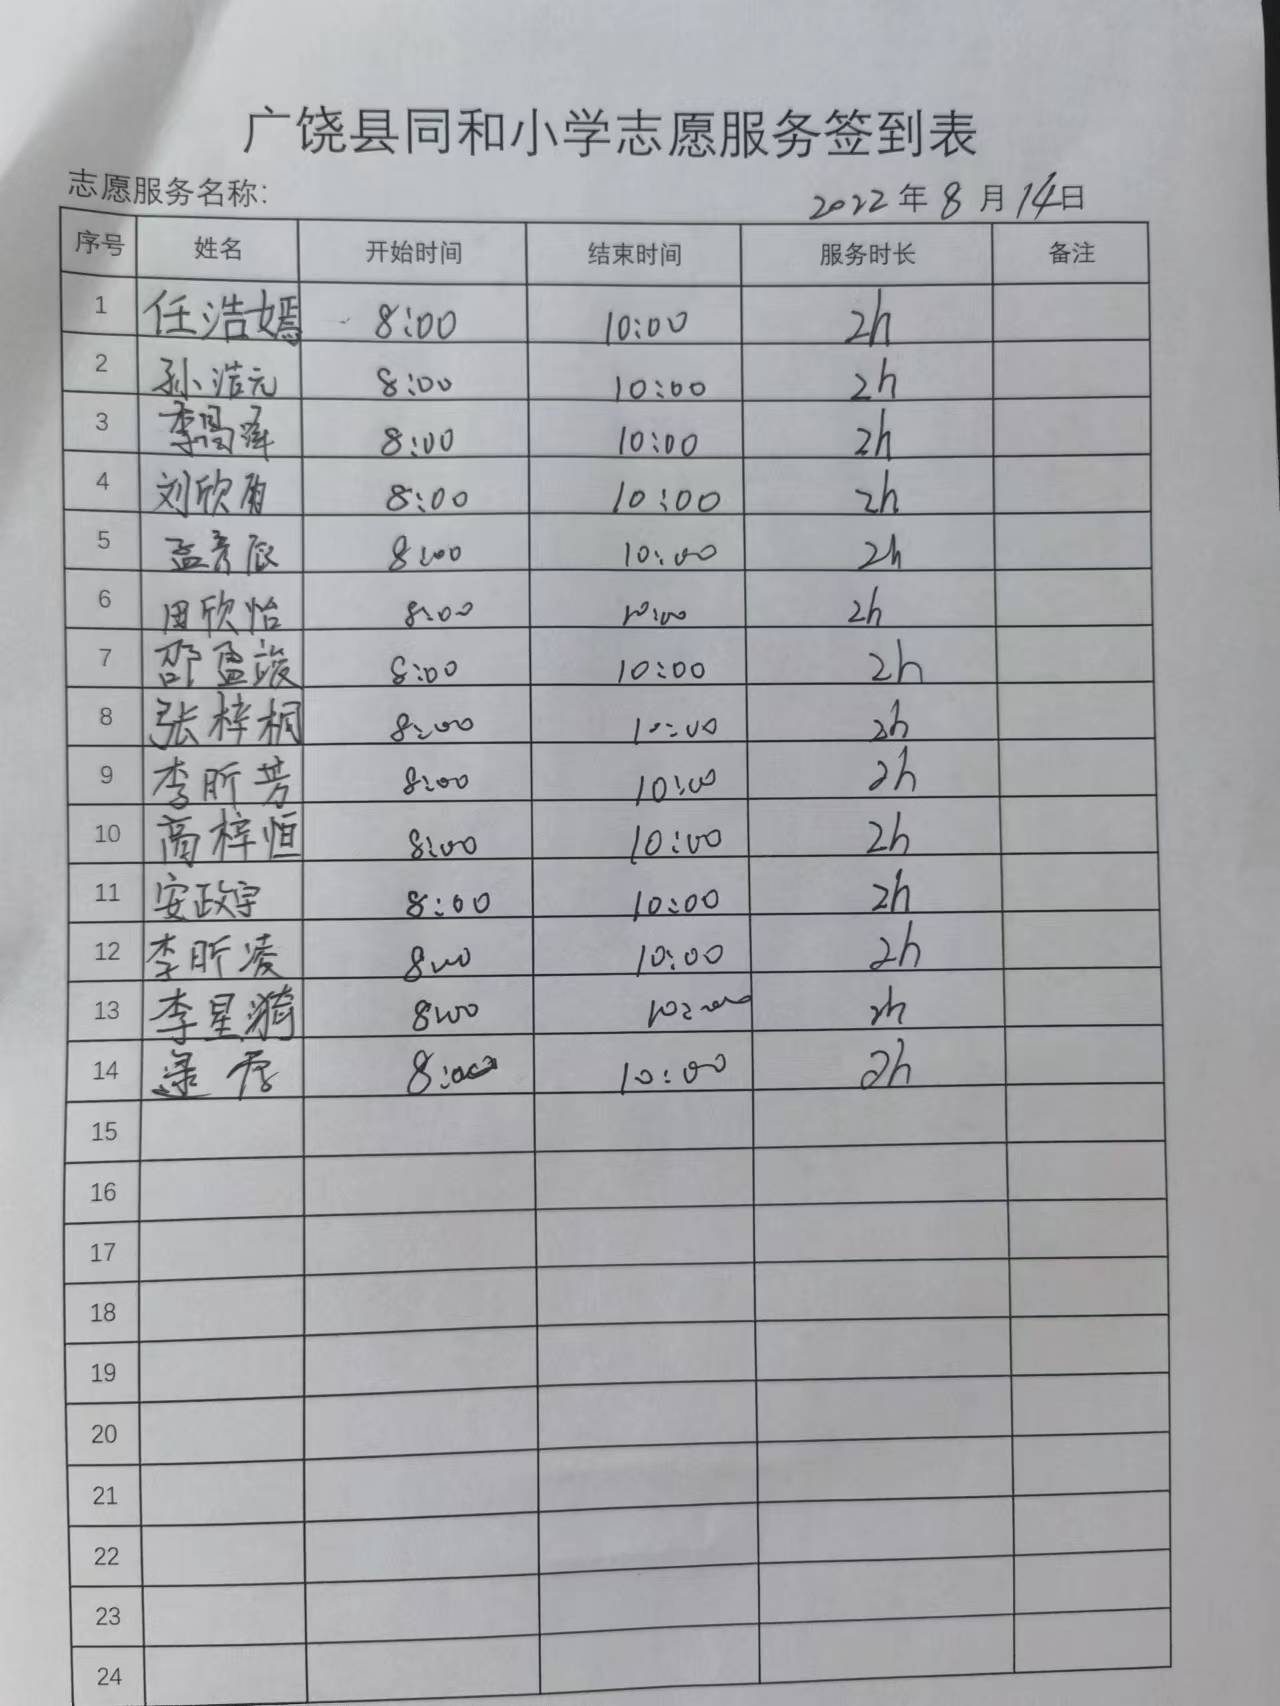 广饶县同和小学志愿服务签到表
志愿服务名称: 2022年8月14日
序号 姓名 开始时间 结束时间 服务时长 备注
1 任浩嫣 8:00 10:00 2h
2 孙浩元 8:00 10:00 2h
3 李昌泽 8:00 10:00 2h
4 刘欣雨 8:00 10:00 2h
5 孟彦辰 8:00 10:00 2h
6 田欣怡 8:00 10:00 2h
7 邵盈竣 8:00 10:00 2h
8 张梓桐 8:00 10:00 2h
9 李昕芳 8:00 10:00 2h
10 高梓恒 8:00 10:00 2h
11 安政宇 8:00 10:00 2h
12 李昕凌 8:00 10:00 2h
13 李星漪 8:00 10:00 2h
14 8:00 10:00 2h
15
16
17
18
19
20
21
22
23
24